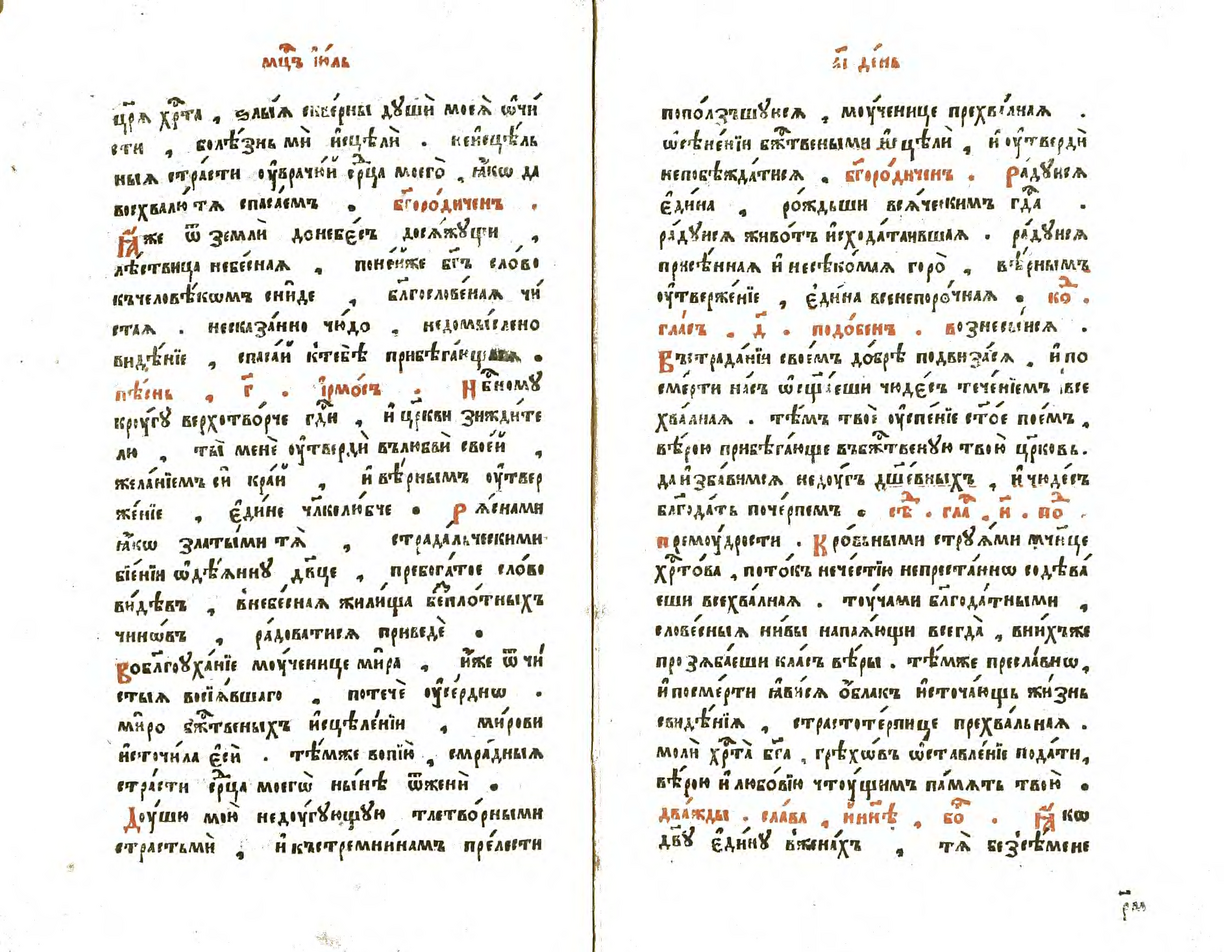 мцⷭ҇ъ і҆ю́ль
цр҃я̀ хрⷭ҇та̀ , ѕлы́ѧ скве́рны дꙋшѝ моеѧ̀ ѡ҆чи́
сти , болѣ́знь мѝ и҆сцѣлѝ . неисцѣ́ль
ныѧ стра́сти оу҆врачꙋ́й срⷣца моего̀ , ꙗ҆́кѡ да
восхвалю́ тѧ спаса́емъ . бг҃оро́диченъ .
Ꙗ҆́же ѿ землѝ донебе́съ досѧ́жꙋщи ,
лѣ́ствица небе́снаѧ , поне́йже бг҃ъ сло́во
къчеловѣ́кѡмъ сни́де , блг҃ослове́наѧ чи́
стаѧ . несказа́нно чю́до , недомы́слено
видѣ́нїе , спаса́й ктебѣ̀ прибѣга́ющаѧ .
пѣ́снь , г҃ . і҆рмо́съ . Нбⷭ҇номꙋ
крꙋ́гꙋ верхотво́рче гдⷭ҇и , и҆ цр҃кви зижди́те
лю , ты̀ менѐ оу҆твердѝ вълюбвѝ свое́й ,
жела́нїемъ сѝ кра́й , и҆ вѣ́рнымъ оу҆твер
же́нїе , є҆ди́не чл҃колю́бче . Рѧ́снами
ꙗ҆́кѡ златы́ми тѧ̀ , страда́льческими
бїе́нїи ѡ҆дѣ́ѧннꙋ дв҃це , пребога́тое сло́во
ви́дѣвъ , внебе́снаѧ жили́ща бе́сплотныхъ
чино́въ , ра́доватисѧ приведѐ .
Воблг҃оꙋха́нїе мꙋ́ченице ми́ра , и҆́же ѿ чи́
стыѧ восїѧ́вшаго , потечѐ оу҆се́рднѡ .
мѵ́ро бжⷭ҇твеныхъ и҆сцѣле́нїи , ми́рови
и҆сточи́ла є҆сѝ . тѣ́мже вопїю̀ , смра́дныѧ
стра́сти срⷣца моегѡ̀ ны́нѣ ѿженѝ .
Дꙋ́шꙋ мою̀ недꙋ́гꙋющꙋю тлетво́рными
страстьмѝ , и҆ къстремни́намъ пре́лести
а҃і де́нь
поползъшꙋ́юсѧ , мꙋ́ченице прехва́лнаѧ .
ѡ҆сѣне́нїи бжⷭ҇твеными и҆сцѣлѝ , и҆ оу҆твердѝ
непобѣжда́тисѧ . бг҃оро́диченъ . Ра́дꙋисѧ
є҆ди́на , ро́ждьши всѧ́ческимъ гдⷭ҇а .
ра́дꙋисѧ живо́тъ и҆схода́таившаѧ . ра́дꙋисѧ
присѣ́ннаѧ и҆ несѣко́маѧ горо̀ , вѣ́рнымъ
оу҆твержде́нїе , є҆ди́на всенепоро́чнаѧ . коⷣ .
гла́съ , д҃ . подо́бенъ . вознесы́исѧ .
Въстрада́нїи свое́мъ до́брѣ подвиза́сѧ , и҆ по
сме́рти на́съ ѡ҆сщ҃а́еши чюде́съ тече́нїемъ все
хва́лнаѧ . тѣ́мъ твоѐ оу҆спе́нїе ст҃ое пое́мъ ,
вѣ́рою прибѣга́юще въбжⷭ҇твенꙋю твою̀ цр҃ковь .
да и҆зба́вимсѧ недꙋ́гъ дш҃е́вныхъ , и҆ чюде́съ
блг҃ода́ть поче́рпемъ . сѣⷣ . глаⷭ҇ , и҃ . поⷣ .
премꙋ́дрости . Кро́вными стрꙋѧ́ми мч҃нице
хрⷭ҇то́ва , пото́къ нече́стїю непреста́ннѡ содѣва́
еши всехва́лнаѧ . тꙋ́чами блг҃ода́тными ,
слове́сныѧ ни́вы напаѧ́ющи всегда̀ , вни́хъже
прозѧба́еши кла́съ вѣ́ры . тѣ́мже пресла́внѡ ,
и҆ посме́рти ꙗ҆ви́сѧ ѻ҆́блакъ и҆сточа́ющь жи́знь
свидѣ́нїѧ , страстоте́рпице прехва́льнаѧ .
молѝ хрⷭ҇та̀ бг҃а , грѣхѡ́въ ѡ҆ставле́нїе пода́ти ,
вѣ́рою и҆ любо́вїю чтꙋ́щимъ па́мѧть твою̀ .
два́жды . сла́ва , и҆ нн҃ѣ , боⷢ҇ . Ꙗ҆́кѡ
дв҃ꙋ є҆ди́нꙋ вжена́хъ , тѧ̀ безсѣ́мене